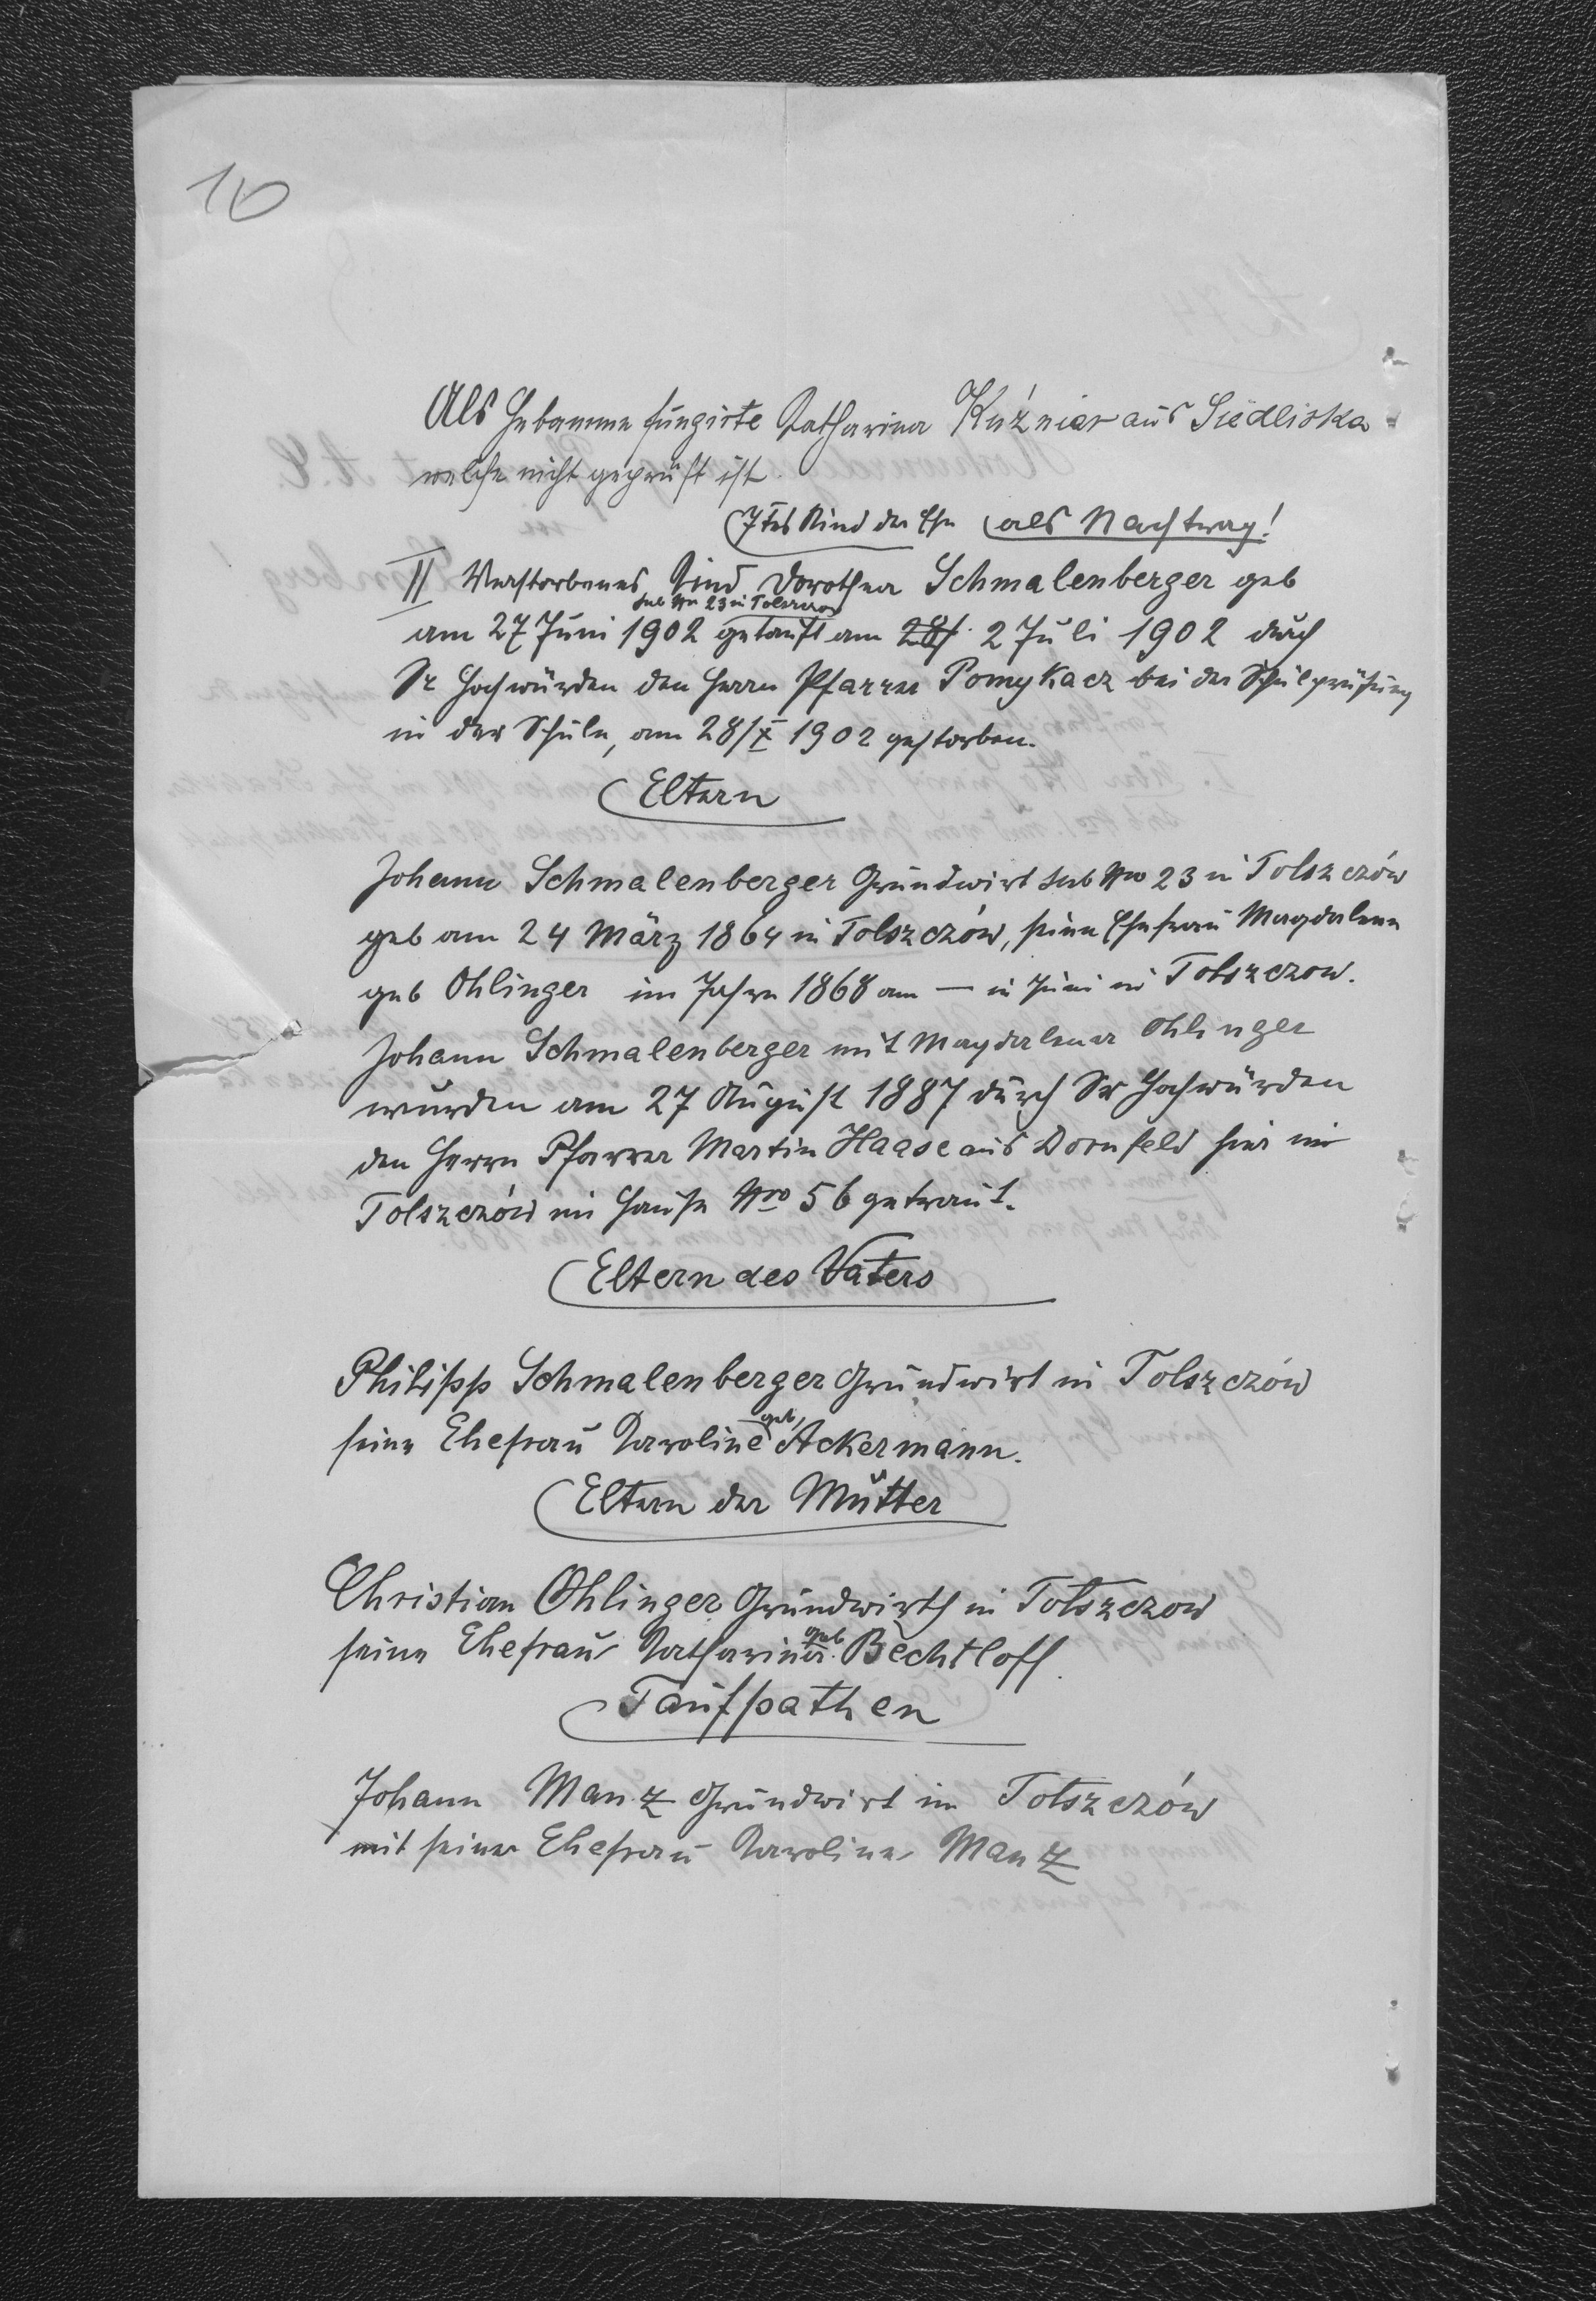 10
Als Hebamme fungirte Katharina Kuźniar aus Siedliska
welche nicht geprüft ist.
7tes Kind der Ehe als Nachtrag!
II Verstorbenes Kind Dorothea Schmalenberger geb
sub Nro 23 in Tolszczow
am 27 Juni 1902 getauft am 28/ 2 Juli 1902 durch
Sr Hochwürden den Herrn Pfarrer Pomykacz bei der Schulprüfung
in der Schule, am 28/X 1902 gestorben.
Eltern
Johann Schmalenberger Grundwirt sub Nro 23 in Tolszczów
geb am 24 März 1864 in Tolszczów, seine Ehefrau Magdalena
geb Ohlinger im Jahre 1868 am — in Juni in Tolszczow.
Johann Schmalenberger mit Magdalena Ohlinger
wurden am 27 August 1887 durch Sr Hochwürden
den Herrn Pfarrer Martin Haase aus Dornfeld hier in
Tolszczów im Hause Nro 56 getraut.
Eltern des Vaters
Philipp Schmalenberger Grundwirt in Tolszczów
seine Ehefrau Karoline geb, Ackermann.
Eltern der Mutter
Christian Ohlinger Grundwirth in Tolszczow
seine Ehefrau Katharina geb Bechtloff.
Taufpathen
Johann Manz Grundwirt in Tolszczów
mit seiner Ehefrau Karolina Manz